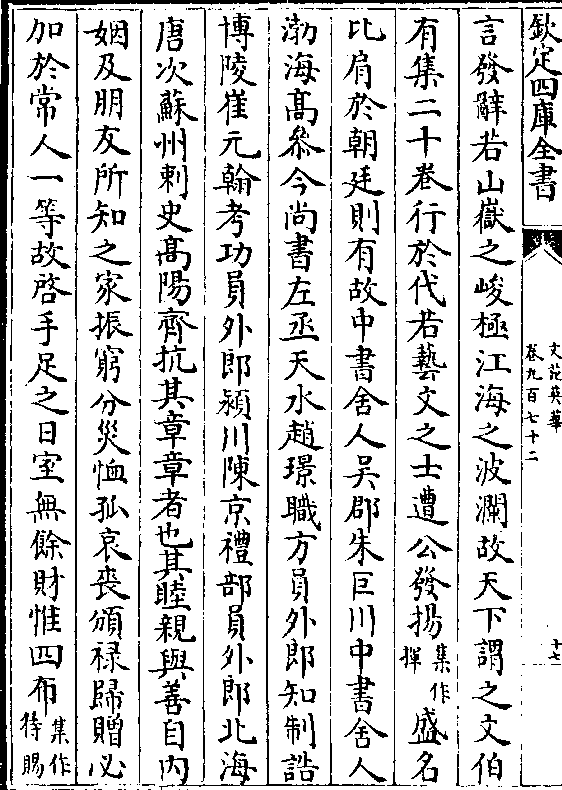 欽定四庫全書
文苑英華
卷九百七十二
十七
言發辭若山嶽之峻極江海之波瀾故天下謂之文伯
有集二十卷行於代若藝文之士遭公發揚集作揮盛名
比肩於朝廷則有故中書舍人吳郡朱巨川中書舍人
渤海髙叅今尚書左丞天水趙璟職方員外郎知制誥
博陵崔元翰考功員外郎潁川陳京禮部員外郎北海
唐次蘇州刺史髙陽齊抗其章章者也其睦親與善自内
姻及朋友所知之家振窮分災恤孤哀喪頒禄歸贈必
加於常人一等故啓手足之日室無餘財惟四布集作待賜